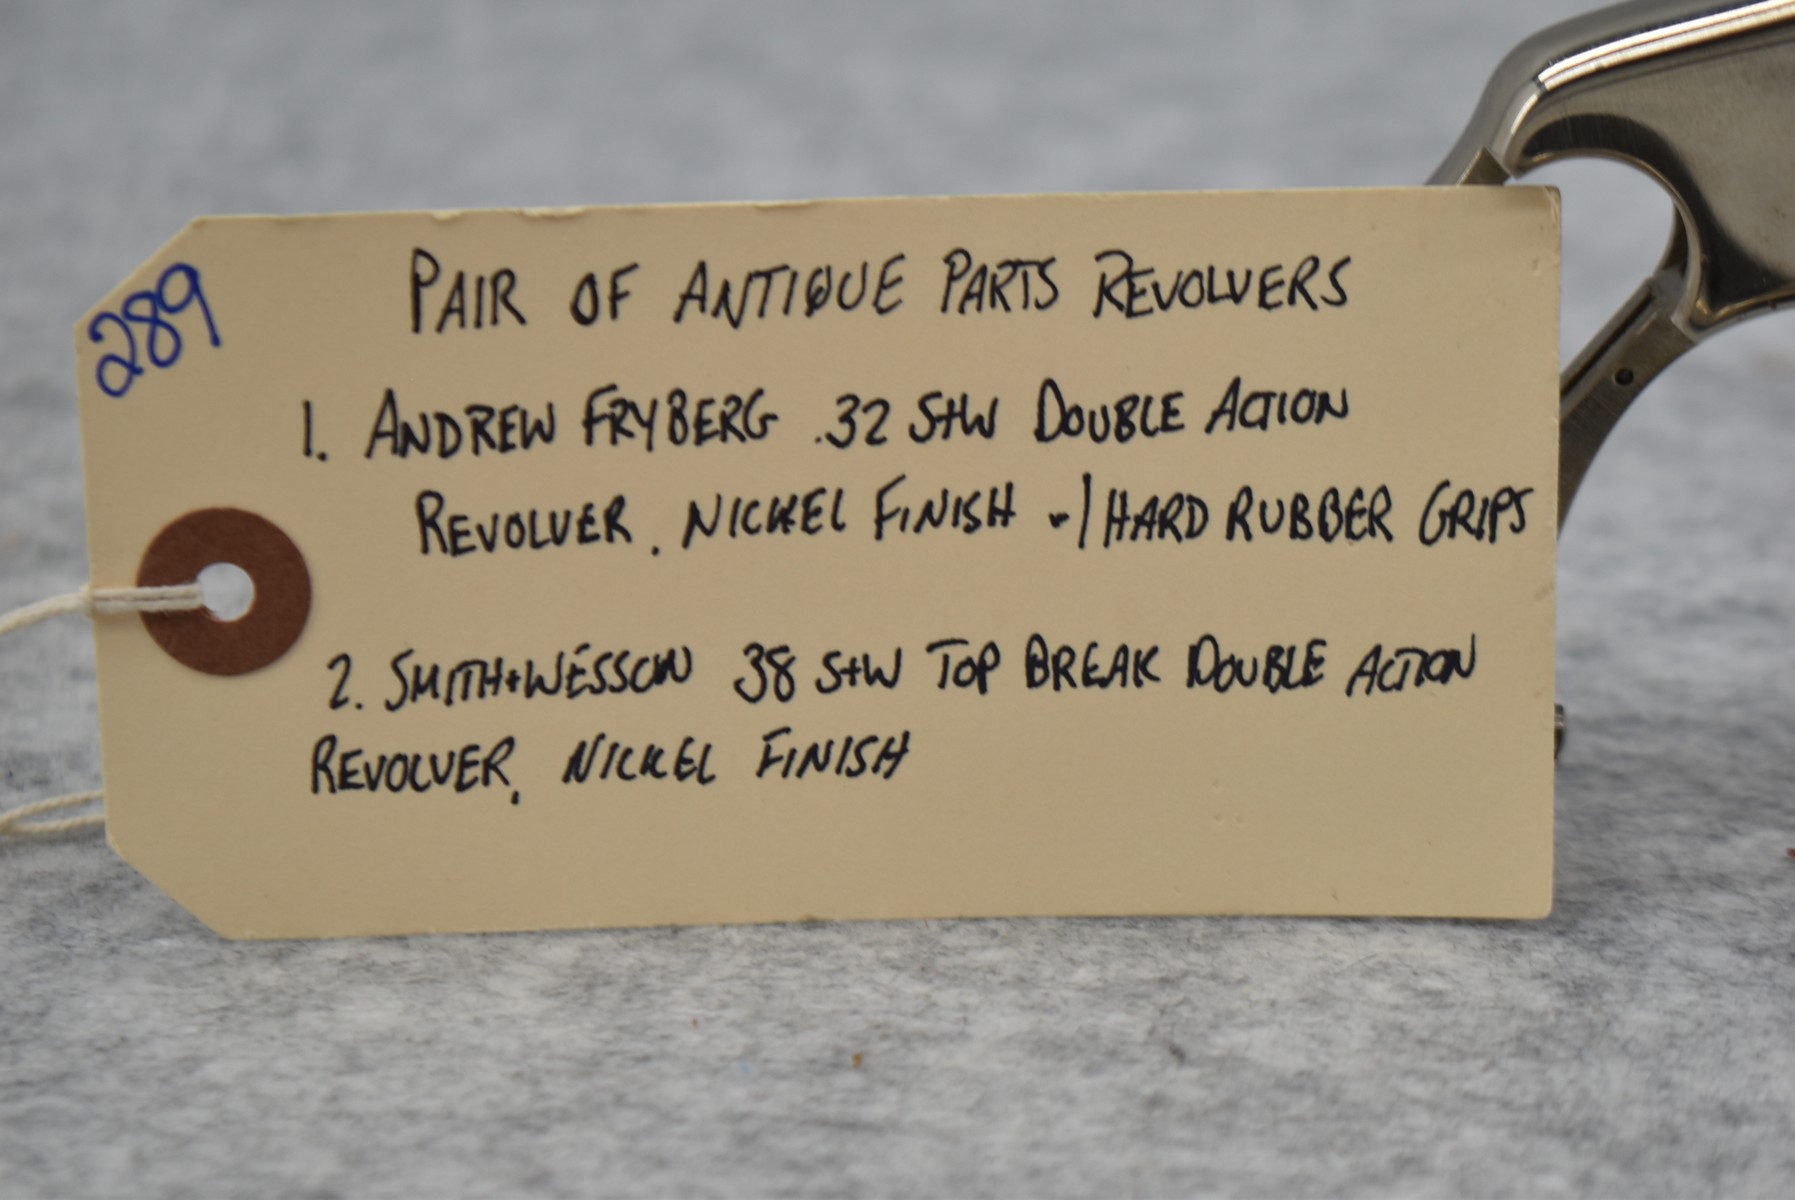 289
PAIR OF ANTIQUE PARTS REVOLVERS
1. ANDREW FRYBERG .32 S+W DOUBLE ACTION
REVOLVER. NICKEL FINISH w/ HARD RUBBER GRIPS
2. SMITH+WESSON 38 S+W TOP BREAK DOUBLE ACTION
REVOLVER, NICKEL FINISH